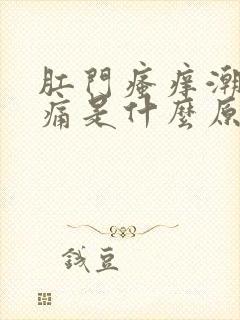 肛門瘙癢潮
痛是什麼原
錢豆